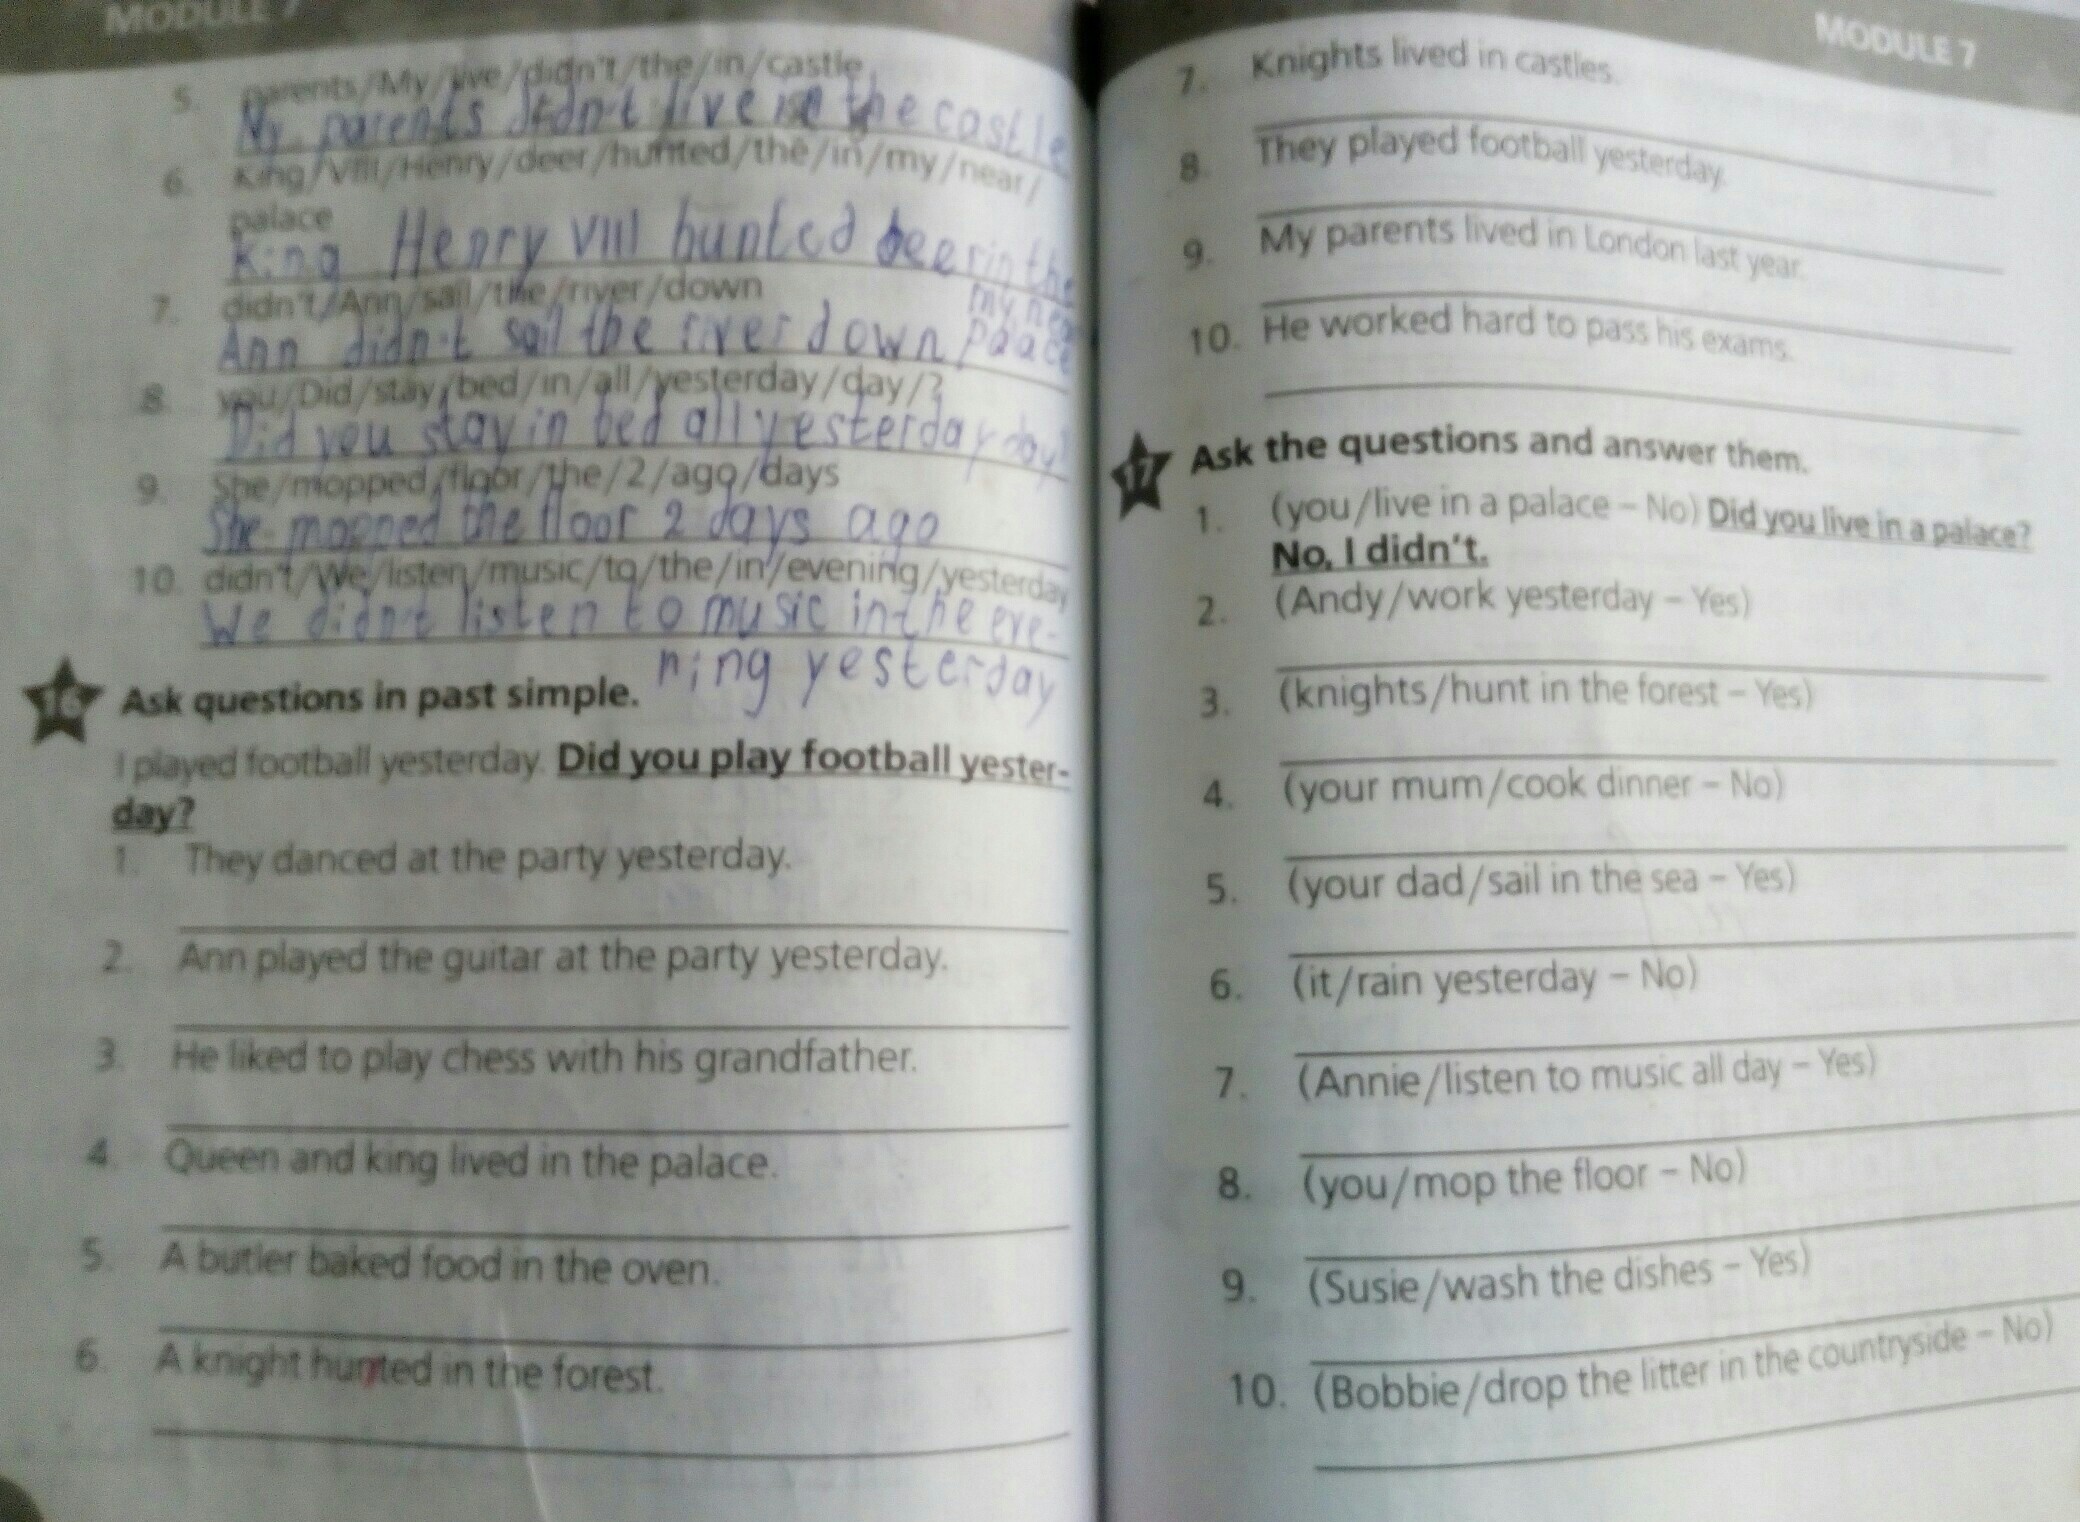 MODULE 7
5. parents/My/live/didn't/the/in/castle
My parents didn't live in the castle
6. King/VIII/Henry/deer/hunted/the/in/my/near/
palace
King Henry VIII hunted deer in the
my near
palace
7. didn't/Ann/sail/the/river/down
Ann didn't sail the river down
8. you/Did/stay/bed/in/all/yesterday/day/?
Did you stay in bed all yesterday day?
9. She/mopped/floor/the/2/ago/days
She mopped the floor 2 days ago
10. didn't/We/listen/music/to/the/in/evening/yesterday
We didn't listen to music in the eve-
ning yesterday
16 Ask questions in past simple.
I played football yesterday. Did you play football yester-
day?
1. They danced at the party yesterday.
2. Ann played the guitar at the party yesterday.
3. He liked to play chess with his grandfather.
4. Queen and king lived in the palace.
5. A butler baked food in the oven.
6. A knight hunted in the forest.
MODULE 7
7. Knights lived in castles.
8. They played football yesterday.
9. My parents lived in London last year.
10. He worked hard to pass his exams.
17 Ask the questions and answer them.
1. (you/live in a palace – No) Did you live in a palace?
No, I didn't.
2. (Andy/work yesterday – Yes)
3. (knights/hunt in the forest – Yes)
4. (your mum/cook dinner – No)
5. (your dad/sail in the sea – Yes)
6. (it/rain yesterday – No)
7. (Annie/listen to music all day – Yes)
8. (you/mop the floor – No)
9. (Susie/wash the dishes – Yes)
10. (Bobbie/drop the litter in the countryside – No)